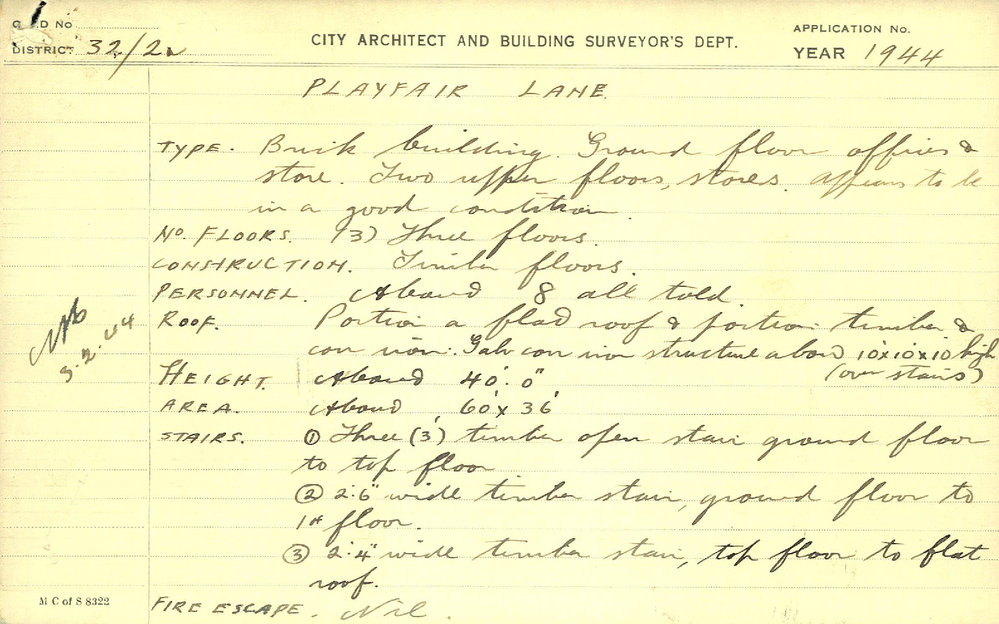 CARD No
DISTRICT 32/2
CITY ARCHITECT AND BUILDING SURVEYOR'S DEPT.
APPLICATION No.
YEAR 1944
PLAYFAIR LANE
TYPE. Brick building. Ground floor offices &
store. Two upper floors, stores. appears to be
in a good condition.
No. FLOORS. (3) Three floors.
CONSTRUCTION. Timber floors.
PERSONNEL. About 8 all told.
ROOF. Portion a flat roof & portion timber &
corr iron. Galv corr iron structure about 10'x10'x10' high
(over stairs)
3.2.44
HEIGHT. About 40'.0"
AREA. About 60' x 36'
STAIRS. ① Three (3') timber open stair ground floor
to top floor
② 2'.6" wide timber stair, ground floor to
1st floor.
③ 2'.4" wide timber stair, top floor to flat
roof.
M C of S 8322
FIRE ESCAPE. Nil.